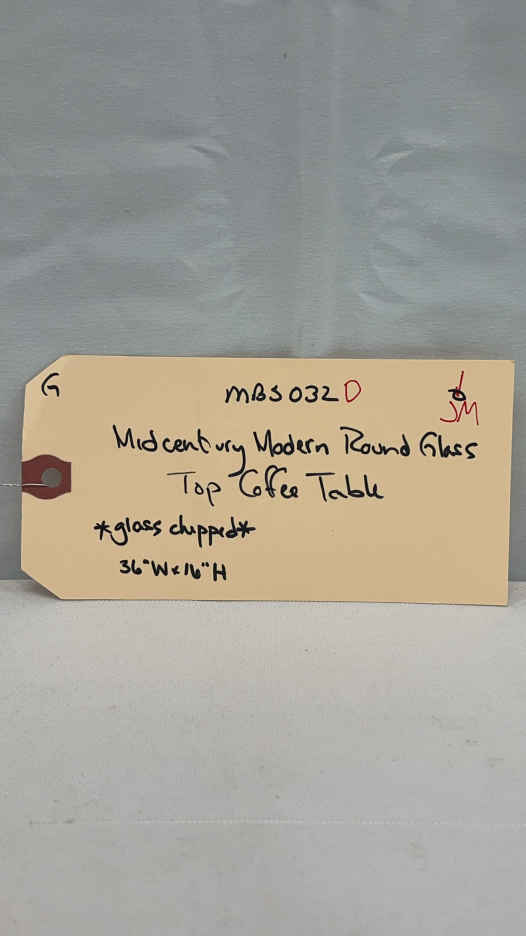 G
MBS032 D
JM
Midcentury Modern Round Glass
Top Coffee Table
*glass chipped*
36"W x 16"H